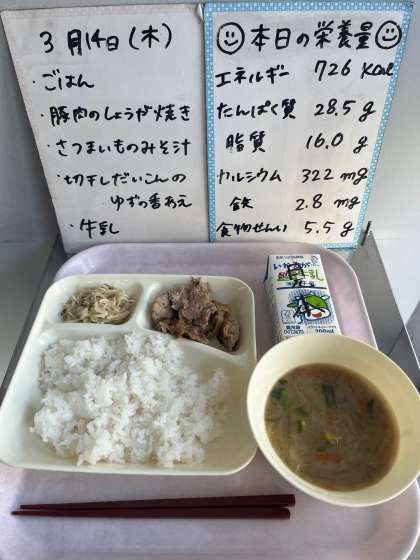 3月14日(木)
・ごはん
・豚肉のしょうが焼き
・さつまいものみそ汁
・切干しだいこんの
ゆずの香あえ
・牛乳
本日の栄養量
エネルギー 726 kcal
たんぱく質 28.5 g
脂質 16.0 g
カルシウム 322 mg
鉄 2.8 mg
食物せんい 5.5 g
見本
200ml